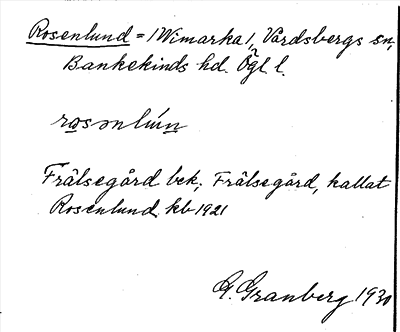 Rosenlund = /Wimarka/, Vårdsbergs sn,
Bankekinds hd. Ögl l.
rosənlún
Frälsegård bek; Frälsegård, kallat
Rosenlund kb 1921
G. Granberg 1930